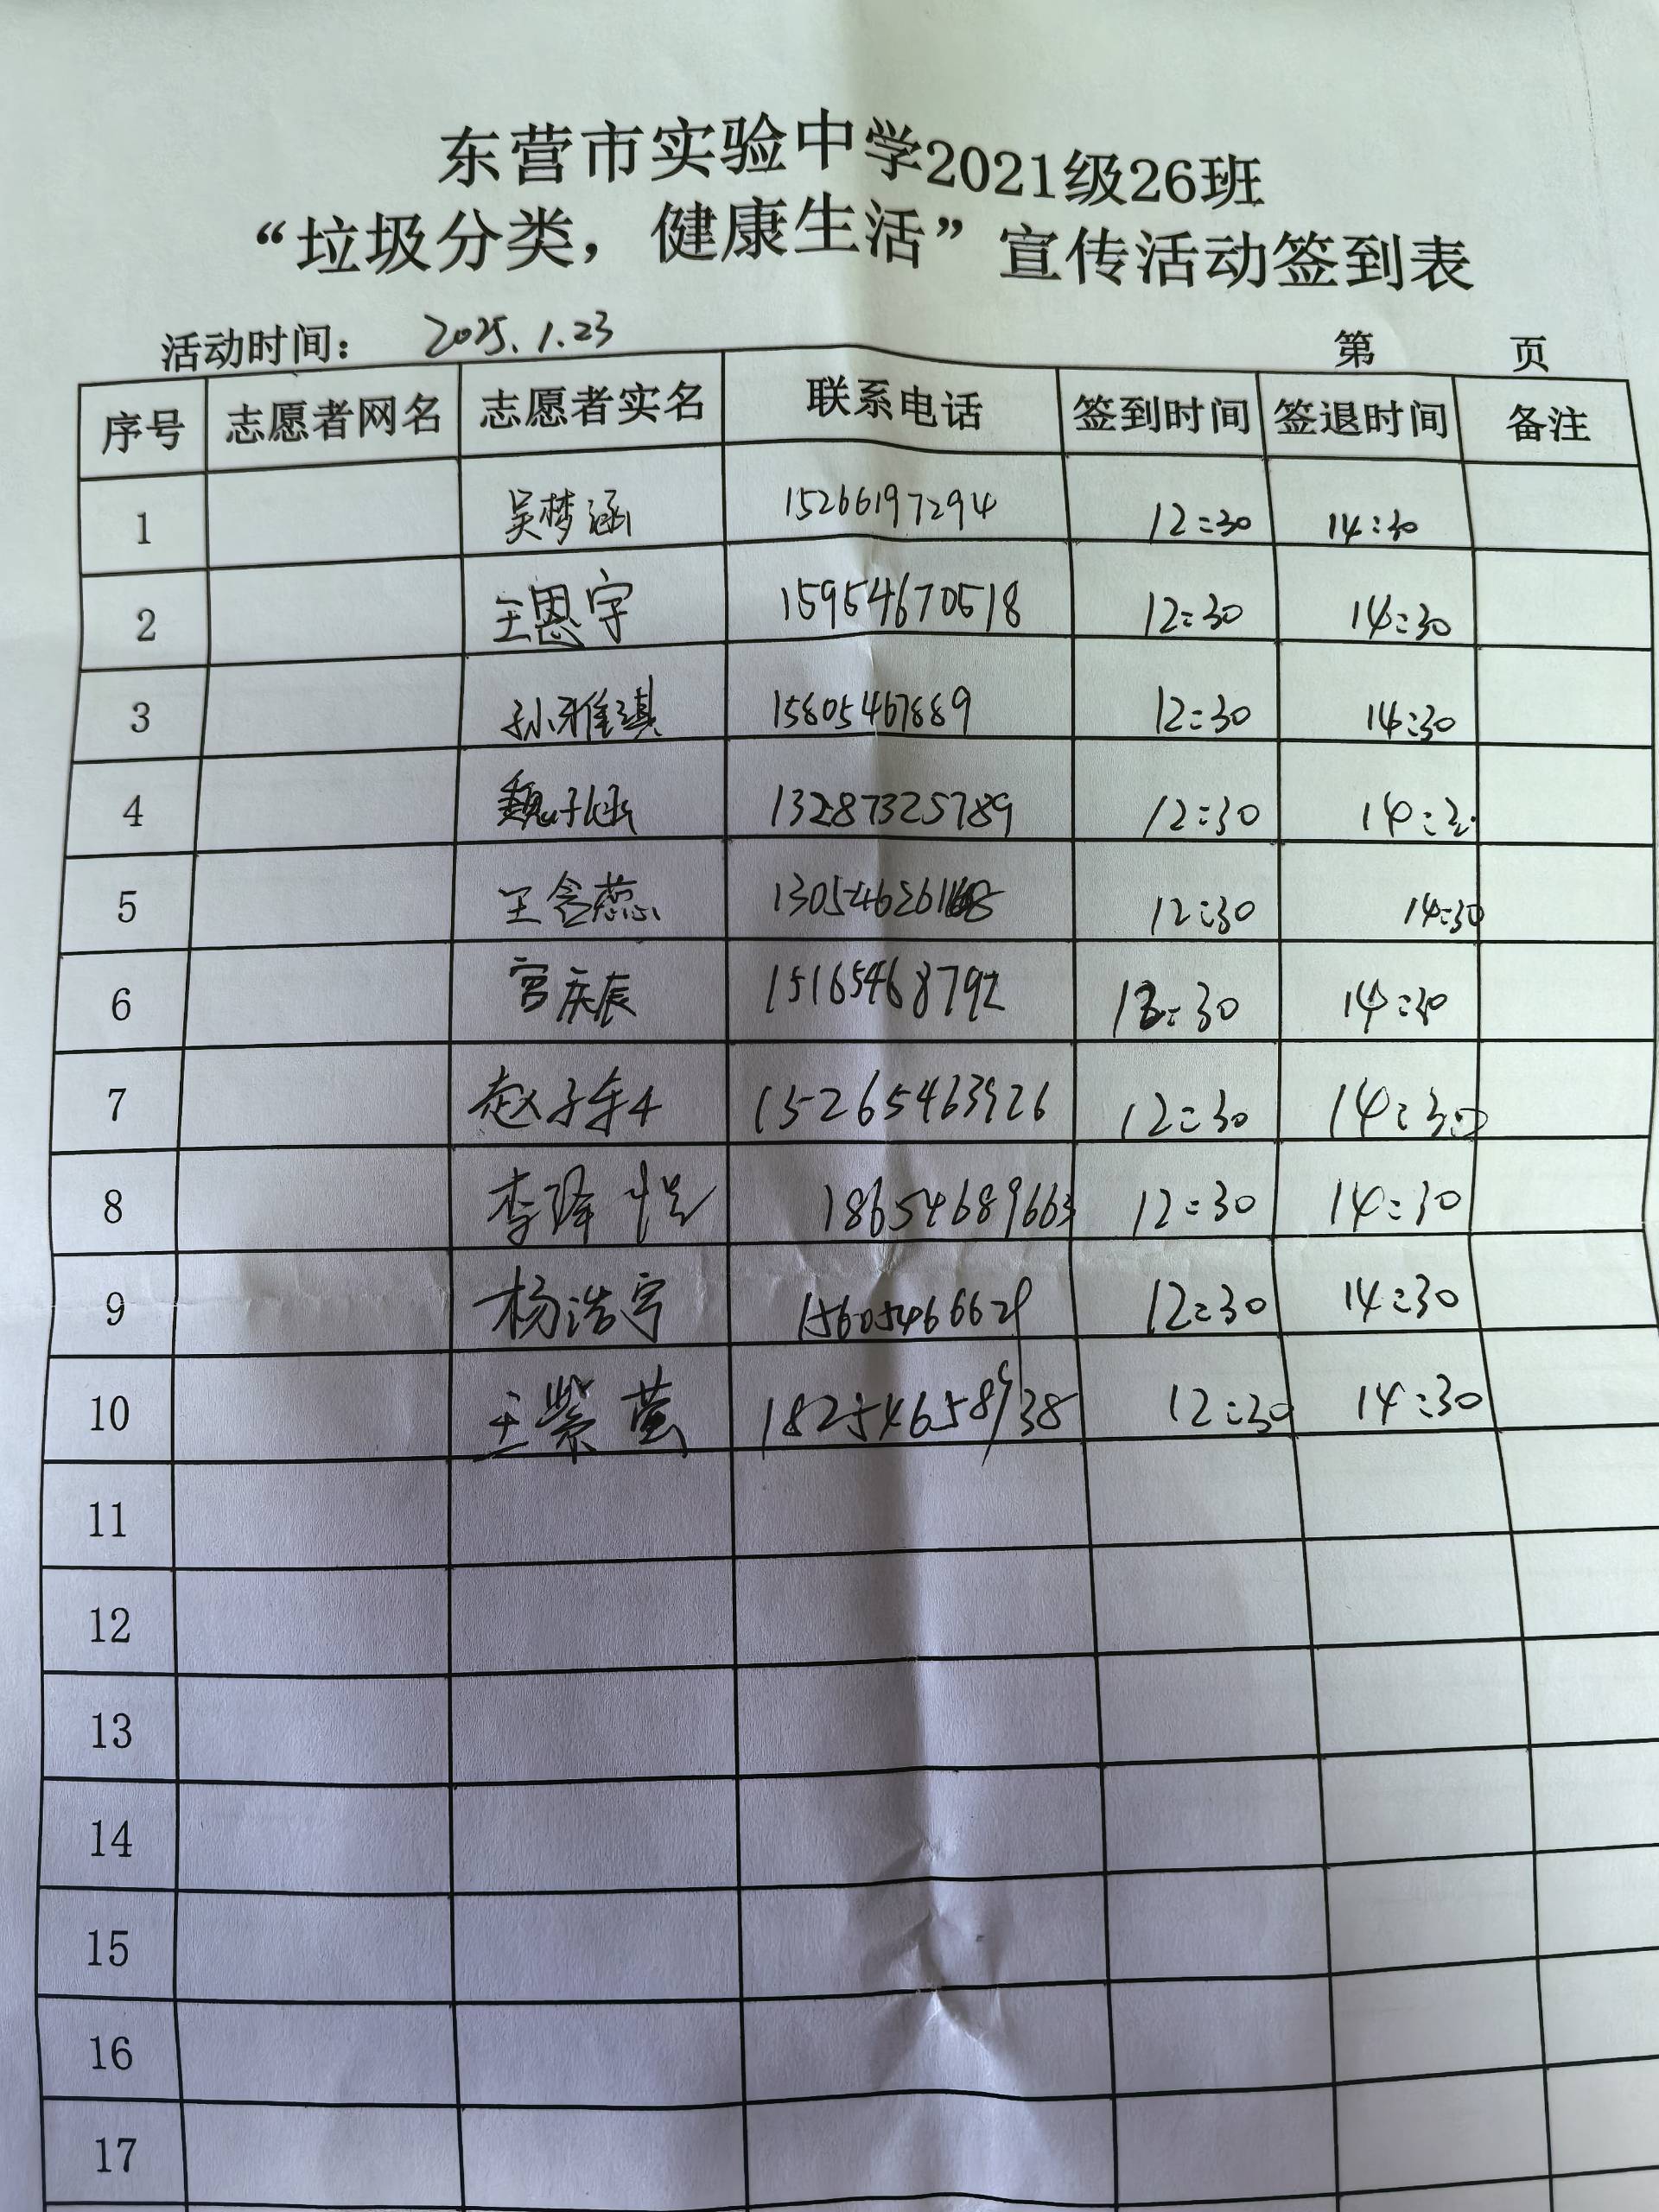 东营市实验中学2021级26班
“垃圾分类，健康生活”宣传活动签到表
活动时间： 2025.1.23 第 页
序号 志愿者网名 志愿者实名 联系电话 签到时间 签退时间 备注
1 吴梦涵 15266197294 12:30 14:30
2 王恩宇 15954670518 12:30 14:30
3 孙雅琪 15805467889 12:30 14:30
4 魏子涵 13287325789 12:30 14:30
5 王含蕊 12:30 14:30
6 宫庆辰 15165468792 12:30 14:30
7 赵子 15265463926 12:30 14:30
8 李泽恺 18654689663 12:30 14:30
9 杨浩宇 15605466629 12:30 14:30
10 王紫萤 12:30 14:30
11
12
13
14
15
16
17